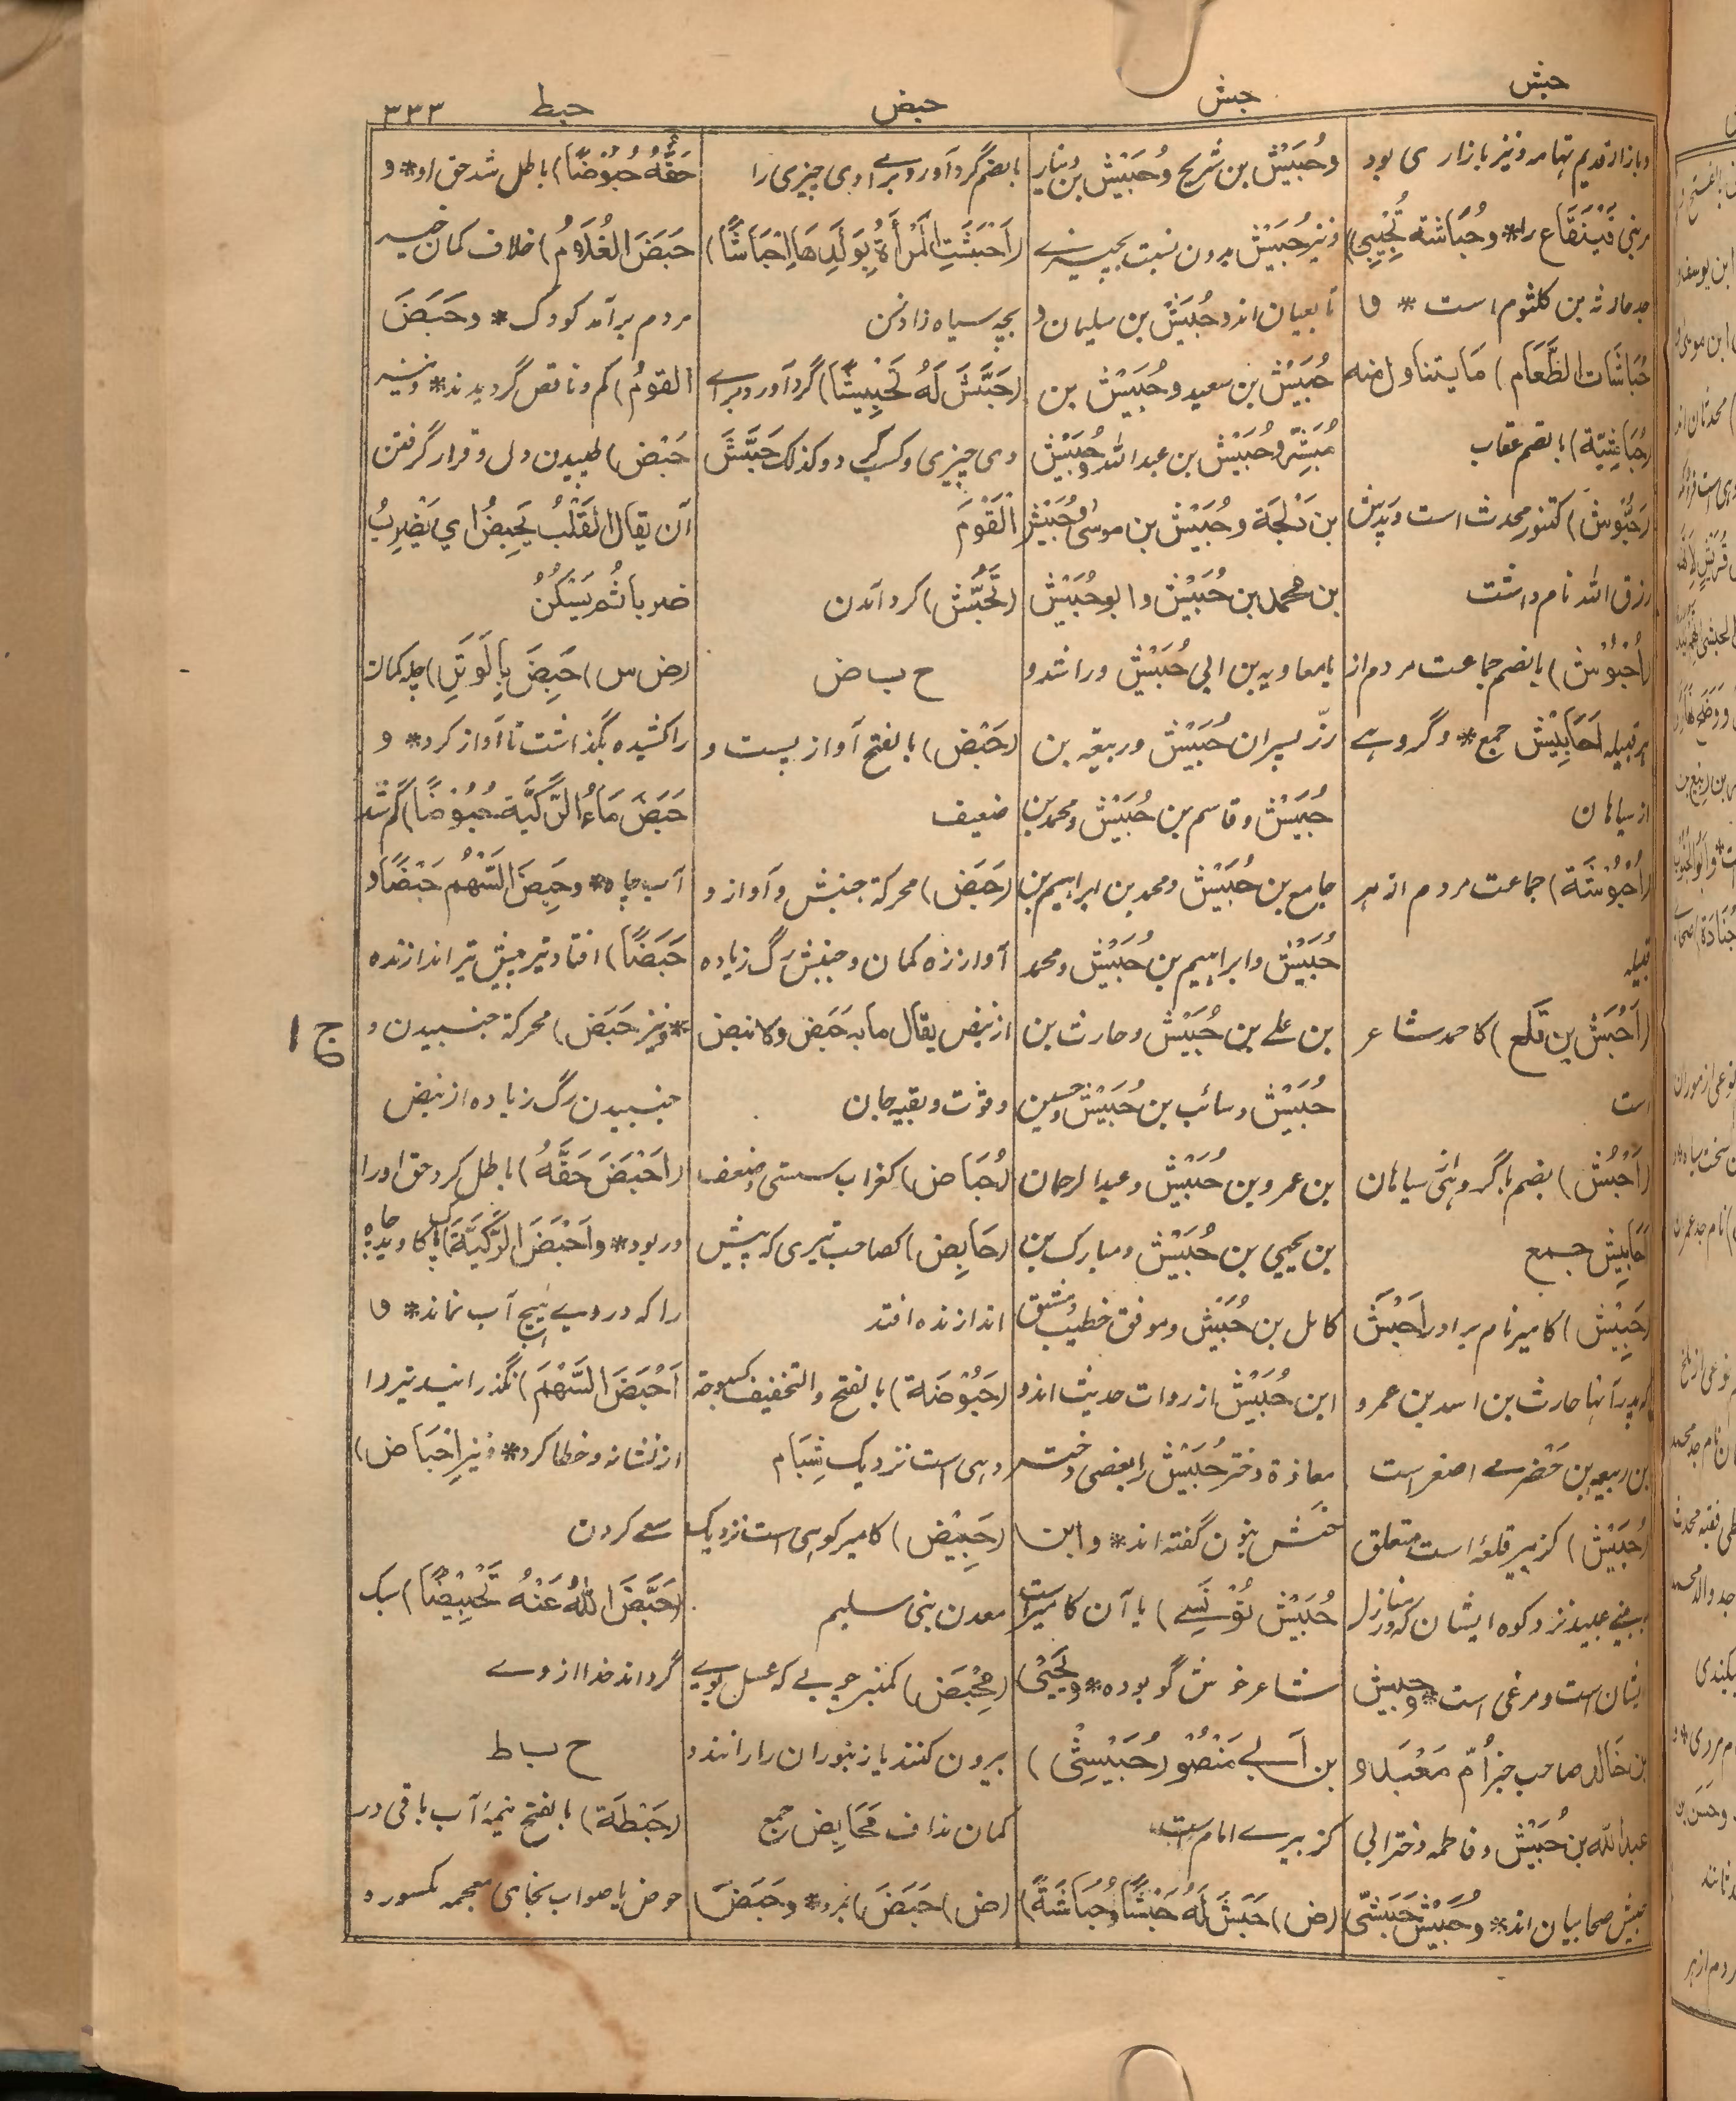 حبش
حبش
حبض
حبط
٣٣٣
و بازار قدیم تهامه و نیز بازاری بود
مر بنی قَیْنُقَاع را* و حُبَاشَة تُجِیْبِی)
جد حارثه بن کلثوم است * و
حُبَاشَات الطَّعَام) مَا یتناول منه
(حُبَاشِیَّة) بالضم عقاب
(حَبُّوْش) کتنور محدث است و پدرش
رزق الله نام داشت
(اُحْبُوْش) بالضم جماعت مردم از
هر قبیله اَحَابِیْش جمع* و گروهے
از سیاهان
(اُحْبُوْشَة) جماعت مردم از هر
قبیله
(اَحْبَش بن قَلَع) کاحمد شاعر
است
(اَحْبُش) بضم با گروهی سیاهان
اَحَابِیْش جمع
(حَبِیْش) کامیر نام برادر اَحْبَش
که پدر آنها حارث بن اسد بن عمرو
بن ربیعه بن حَضْرمے اصغر است
(حُبَیْش) کزبیر قلعه است متعلق
عبید نزد کوه ایشان که در منازل
ایشان است و مرغی است* و حبیش
بن خَالِد صاحب خبر اُمّ مَعْبَد و
عبد الله بن حُبَیْش و فاطمه دختر ابی
حُبَیْش صحابیان اند* و حُبَیْش حَبَشِیّ
و حُبَیْش بن شریح و حُبَیْش بن دینار
و نیز حُبَیْش بدون نسبت بچیزے
تابعیان اند و حُبَیْش بن سلیمان و
حُبَیْش بن سعید و حُبَیْش بن
مُبَشِّر و حُبَیْش بن عبد الله و حُبَیْش
بن دُلْجَة و حُبَیْش بن موسٰی و حُبَیْش
بن محمد بن حُبَیْش و ابو حُبَیْش
یا معاویه بن ابی حُبَیْش و راشد و
زرّ پسران حُبَیْش و ربیعه بن
حُبَیْش و قاسم بن حُبَیْش و محمد بن
جامع بن حُبَیْش و محمد بن ابراهیم بن
حُبَیْش و ابراهیم بن حُبَیْش و محمد
بن علے بن حُبَیْش و حارث بن
حُبَیْش و سائب بن حُبَیْش و حسین
بن عمرو بن حُبَیْش و عبد الرحمان
بن یحیی بن حُبَیْش و مبارک بن
کامل بن حُبَیْش و موفق خطیب دمشق
ابن حُبَیْش از روات حدیث اند و
معاذة دختر حُبَیْش را بعضی دختر
حَنَش بنون گفته اند* و ابن
حُبَیْش تُوْنسِے) یا آن کامیر است
شاعر خوش گو بوده* و یَحْیٰی
بن اَبِے مَنْصُوْر حُبَیْشِیّ)
کزبیرے امام است
(ض) حَبَشَ لَهُ حَبْشًا وحُبَاشَةً)
بالضم گرد آورد برائے او بی چیزی را
(اَحْبَشَتِ الْمَرْأَةُ بِوَلَدِهَا اِحْبَاشًا)
بچه سیاه زاد زن
(حَبَّشَ لَهُ تَحْبِیْشًا) گرد آورد برائے
وی چیزی و کسب کرد و کذلک حَبَّشَ
الْقَوْمَ
(تَحَبُّش) گرد آمدن
ح ب ض
(حَبْض) بالفتح آواز پست و
ضعیف
(حَبَض) محرکة جنبش و آواز و
آواز زه کمان و جنبش رگ زیاده
از نبض یقال ما به حَبَض ولا نبض
و قوت و بقیه جان
(حُبَاض) کغراب سستی و ضعف
(حَابِض) کصاحب تیری که پیش
اندازنده افتد
(حَبُوْضَة) بالفتح و التخفیف کسبوحة
دهی است نزدیک شِبَام
(حَبِیْض) کامیر کوهی است نزدیک
معدن بنی سلیم
(مِحْبَض) کمنبر چوبے که عسل بوی
بیرون کنند یا زنبوران را رانند و
کمان نداف مَحَابِض جمع
(ض) حَبَضَ) بمرد* و حَبَضَ
حَقُّهُ حُبُوْضًا) باطل شد حق او* و
حَبَضَ الغُلَامُ) خلاف کمان خیر
مردم برآمد کودک* و حَبَضَ
القومُ) کم و ناقص گردیدند* و نیز
حَبْض) طپیدن دل و قرار گرفتن
آن یقال القَلْبُ یَحْبِضُ اي یَضْرِبُ
ضربا ثُمَّ یَسْکُنُ
(ض س) حَبَضَ بِالْوَتَرِ) چله کمان
را کشیده بگذاشت تا آواز کرد* و
حَبَضَ مَاءُ الرَّکِیَّة حُبُوْضًا) کم شد
آب چاه* و حَبِضَ السَّهْمُ حَبْضًا و
حَبَضًا) افتاد تیر پیش تیر اندازنده
* و نیز حَبَض) محرکة جنبیدن و
جنبیدن رگ زیاده از نبض
(اَحْبَضَ حَقَّهُ) باطل کرد حق او را
و ربود* و اَحْبَضَ الرَّکِیَّةَ) پاکاوید چاه
را که در وے هیچ آب نماند* و
اَحْبَضَ السَّهْمَ) نگذرانید تیر را
از نشانه و خطا کرد* و نیز اِحْبَاض)
سعے کردن
(حَبَّضَ اللهُ عَنْهُ تَحْبِیْضًا) سبک
گرداند خدا از وے
ح ب ط
(حَبْطَة) بالفتح نیمهٔ آب باقی در
حوض یا صواب بخای معجمه مکسوره
ج ا